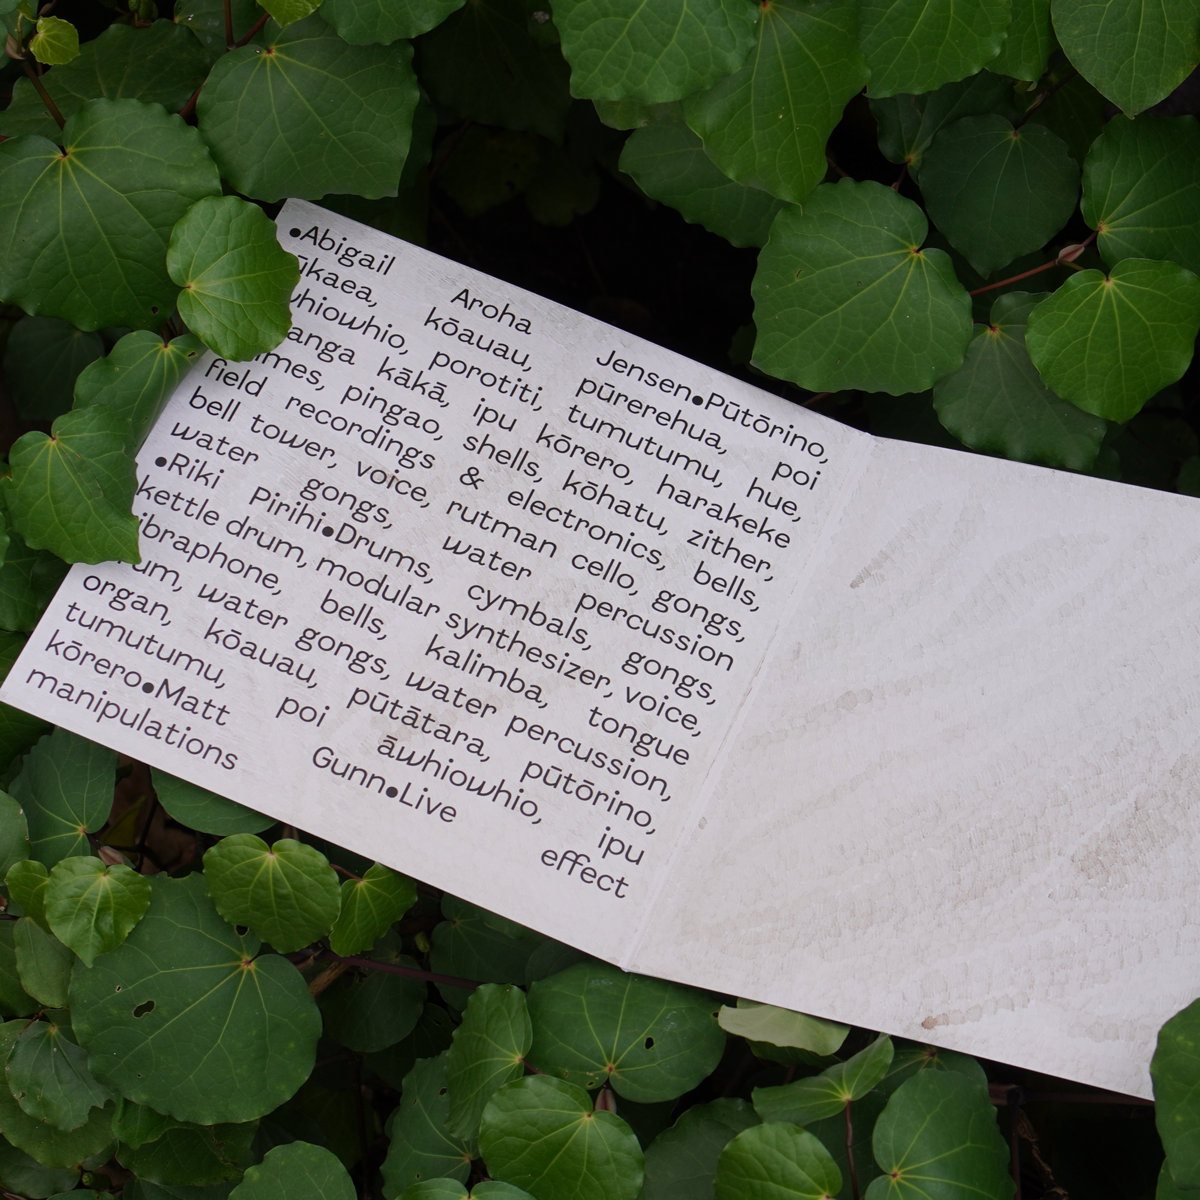 •Abigail Aroha Jensen•Pūtōrino,
ūkaea, kōauau, pūrerehua, poi
whiowhio, porotiti, tumutumu, hue,
anga kākā, ipu kōrero, harakeke
imes, pingao, shells, kōhatu, zither,
field recordings & electronics, bells,
bell tower, voice, rutman cello, gongs,
water gongs, water percussion
•Riki Pirihi•Drums, cymbals, gongs,
kettle drum, modular synthesizer, voice,
ibraphone, bells, kalimba, tongue
rum, water gongs, water percussion,
organ, kōauau, pūtātara, pūtōrino,
tumutumu, poi āwhiowhio, ipu
kōrero•Matt Gunn•Live effect
manipulations